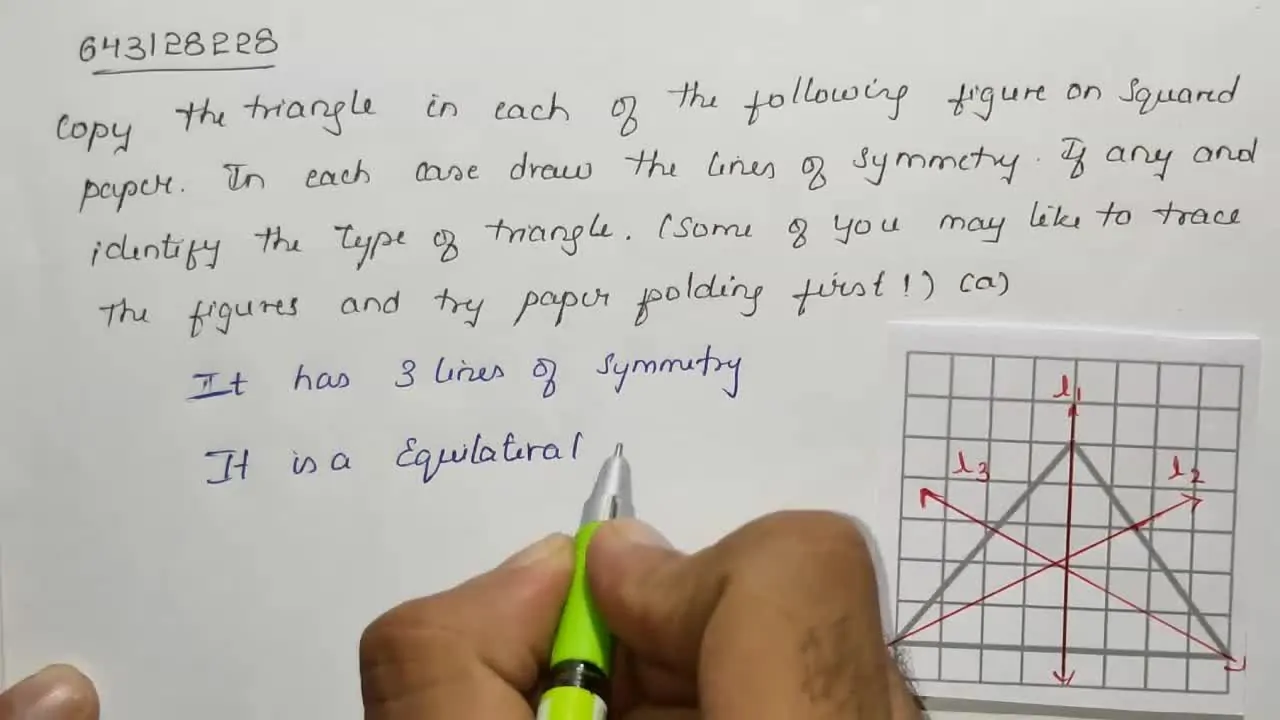 643128228
Copy the triangle in each of the following figure on squared
paper. In each case draw the lines of symmetry. If any and
identify the Type of triangle. (Some of you may like to trace
The figures and try paper folding first!) (a)
It has 3 lines of symmetry
It is a Equilateral
l1
l3
l2